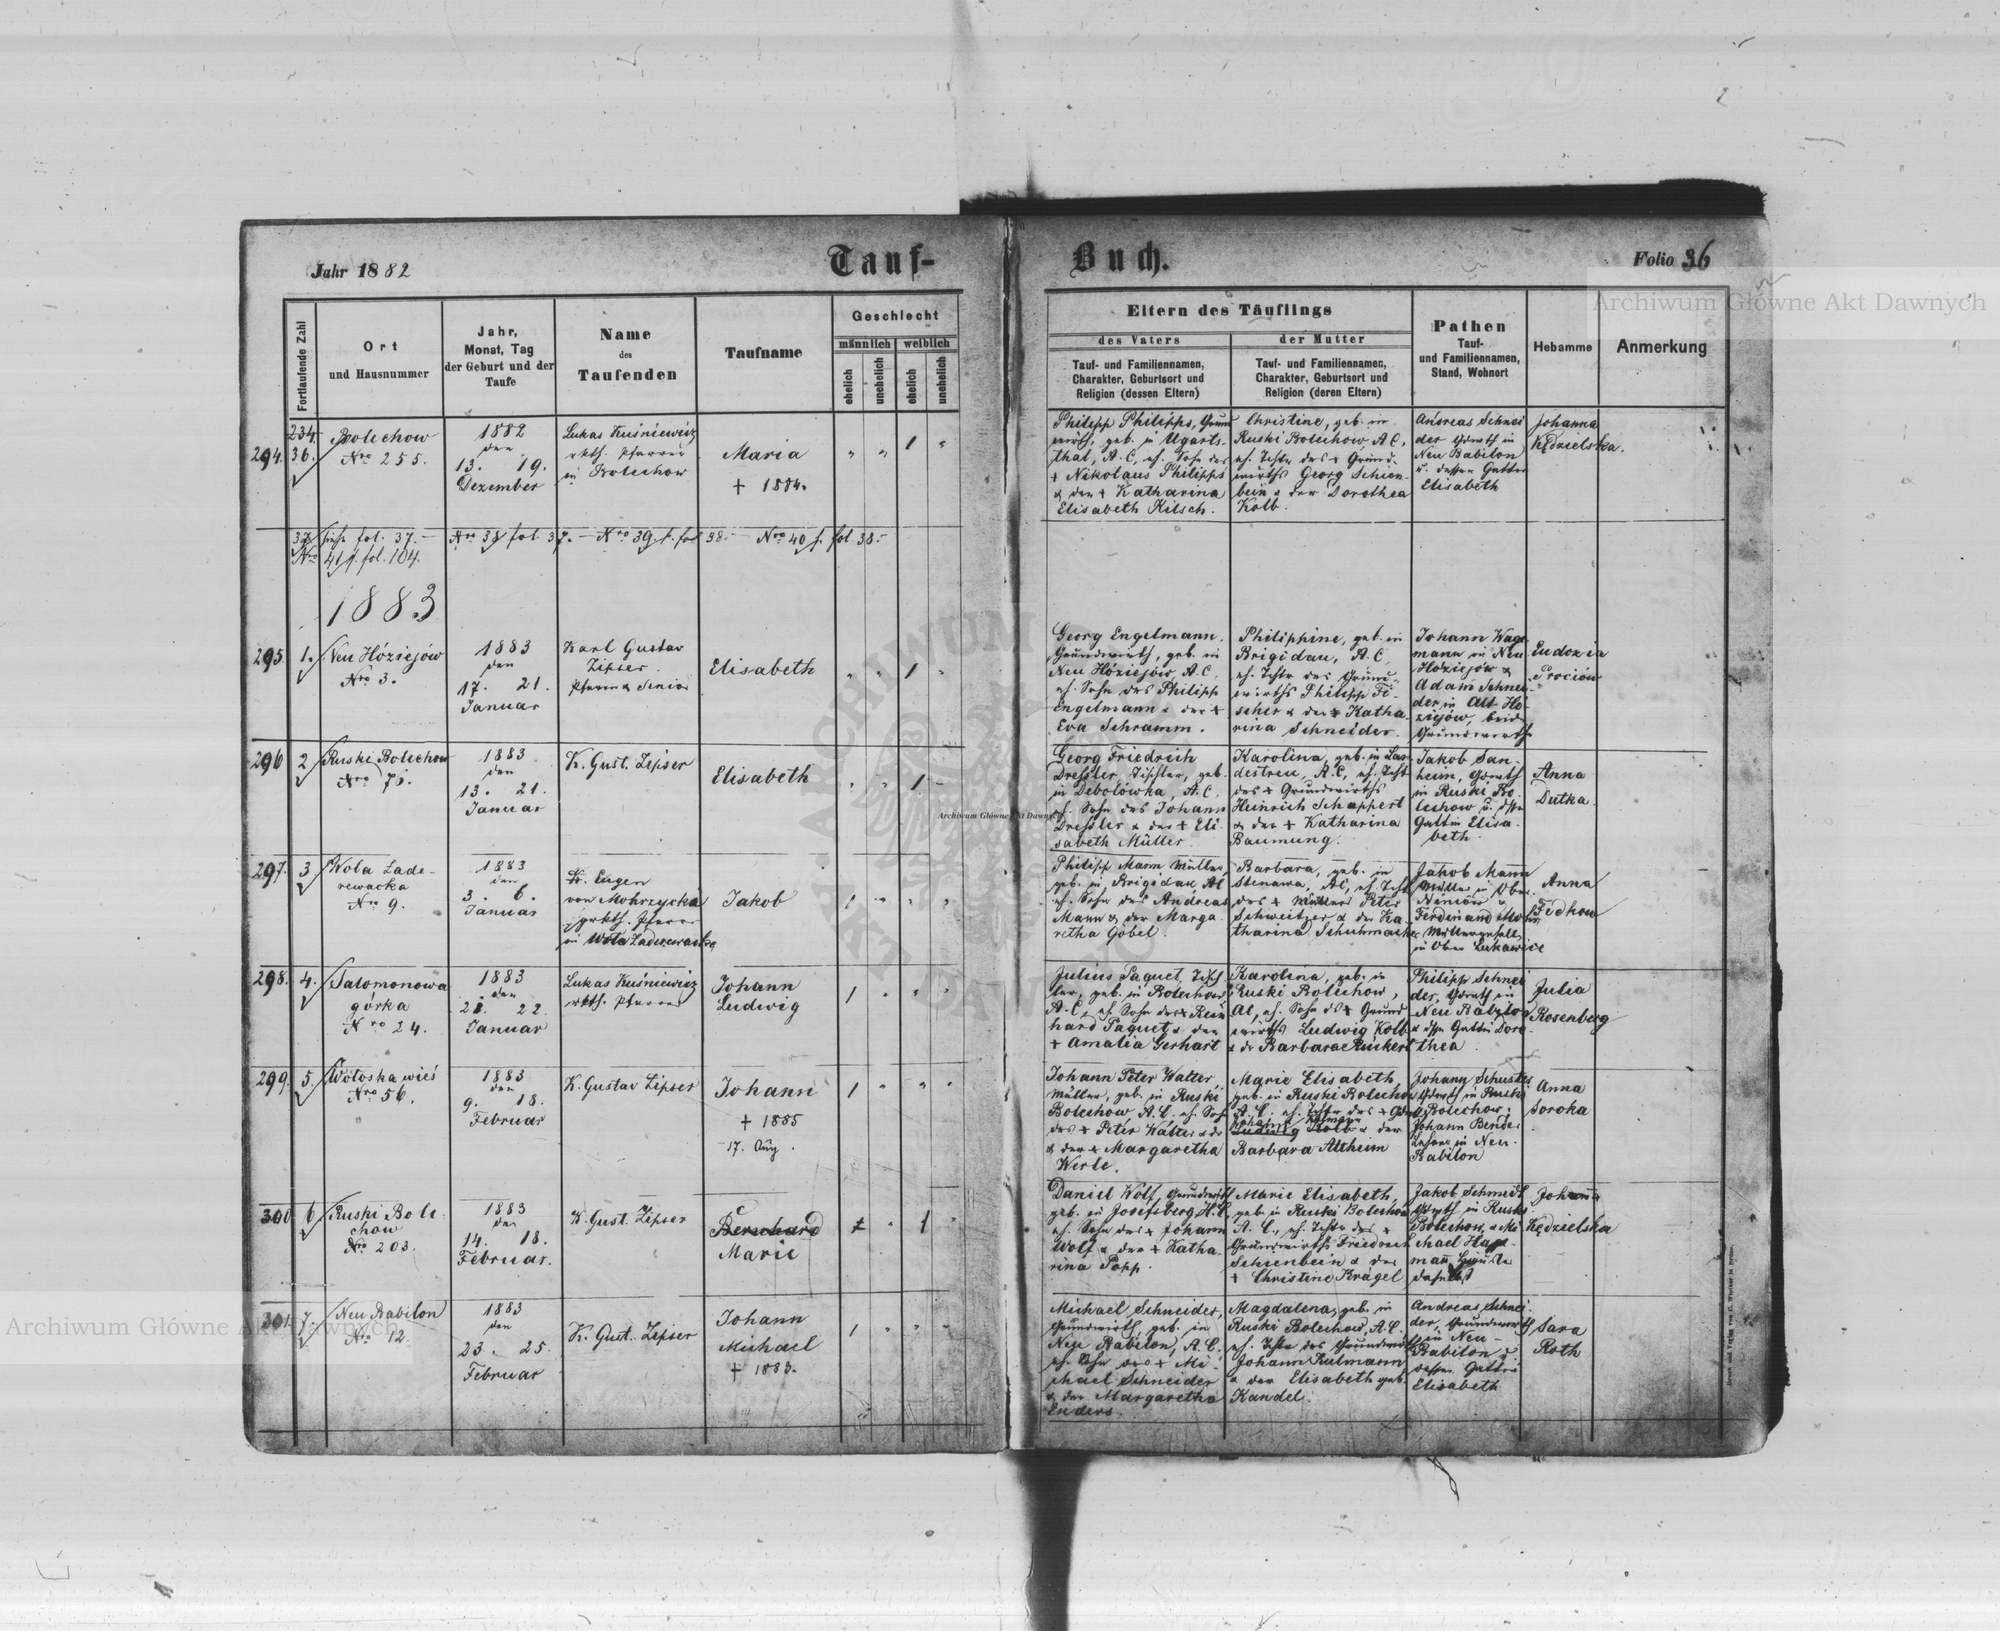 Jahr 1882
Tauf-
Buch.
Folio 36
Fortlaufende Zahl
Ort
und Hausnummer
Jahr,
Monat, Tag
der Geburt und der
Taufe
Name
des
Taufenden
Taufname
Geschlecht
männlich weiblich
ehelich unehelich ehelich unehelich
Eltern des Täuflings
des Vaters
Tauf- und Familiennamen,
Charakter, Geburtsort und
Religion (dessen Eltern)
der Mutter
Tauf- und Familiennamen,
Charakter, Geburtsort und
Religion (deren Eltern)
Pathen
Tauf-
und Familiennamen,
Stand, Wohnort
Hebamme
Anmerkung
294. 36.
Bolechow
Nro 255.
1882
den
13. 19.
Dezember
Lukas Kuśniewicz
rkth. Pfarrer
in Bolechow
Maria
+ 1884.
" " 1 "
Philipp Philipps, Grund
wirth, geb. in Ugarts-
thal, A.C., eh. Sohn des
+ Nikolaus Philipps
& der + Katharina
Elisabeth Kitsch.
Christine, geb. in
Ruski Bolechow A.C.,
eh. Tchtr des + Grund-
wirths Georg Schien-
bein & der Dorothea
Kolb.
Andreas Schnei
der Gdwrth in
Neu Babilon
u. dessen Gattin
Elisabeth
Johanna
Kędzielska.
37 siehe fol. 37. — Nro 38 fol. 37. — Nro 39 f. fol 38. — Nro 40 f. fol 38. —
Nro 41 f. fol. 104.
1883
295. 1.
Neu Hóziejów
Nro 3.
1883
den
17. 21.
Januar
Karl Gustav
Zipser.
Pfarrer & Senior
Elisabeth
" " 1 "
Georg Engelmann,
Grundwirth, geb. in
Neu Hóziejów A.C.
eh. Sohn des Philipp
Engelmann & der +
Eva Schramm.
Philippine, geb. in
Brigidau, A.C.
eh. Tchtr des Grund-
wirths Philipp Fi-
scher & der + Katha-
rina Schneider.
Johann Wag-
mann in Neu
Hóziejów &
Adam Schnei-
der in Alt-Ho-
ziejów, beide
Grundwirthe
Eudozia
Prociów
296 2
Ruski Bolechow
Nro 71.
1883
den
13. 21.
Januar
K. Gust. Zipser
Elisabeth
" " 1 "
Georg Friedrich
Dressler, Tischler, geb.
in Debolówka, A.C.
eh. Sohn des Johann
Dressler & der + Eli-
sabeth Müller.
Karolina, geb. in
A.C., eh. Tcht
des + Grundwirths
Heinrich Schappert
& der + Katharina
Baumung.
Jakob San-
heim, Gdwrth
in Ruski Bo-
lechow u. dssn
Gattin Elisa-
beth.
Anna
Dutka.
297. 3
Wola Zade-
rewacka
Nro 9.
1883
den
3. 6.
Januar
Eugen
von Mohrzycki
grkth. Pfarrer
in Wola Zaderewacka
Jakob
1 " " "
Philipp Mann Müller,
geb. in Brigidau AC
eh. Sohn des Andreas
Mann & der Marga-
retha Göbel.
Barbara, geb. in
AC, eh. Tcht
des + Müllers Peter
Schweitzer & der Ka-
tharina Schuhmacher
Jakob Mann
Müller in Ober
&
Ferdinand
Müllergesell
in Ober Łukawice
Anna
Fedkow
298. 4.
Salomonowa
górka
Nro 24.
1883
den
21. 22.
Januar
Lukas Kuśniewicz
rkth. Pfarrer
Johann
Ludwig
1 " " "
Julius Paquet, Tisch
ler, geb. in Bolechow
A.C., eh. Sohn des + Rein
hard Paquet & der
+ Amalia Gerhart
Karolina, geb. in
Ruski Bolechow,
AC, eh. ds + Grund
wirths Ludwig Kolb
& dr Barbara Rückert
Philipp Schnei
der, Gdwrth in
Neu Babilon
& dssn Gattin Doro-
thea.
Julia
Rosenberg
299. 5.
Wołoska wieś
Nro 56.
1883
den
9. 18.
Februar
K. Gustav Zipser
Johann
+ 1885
17. Aug.
1 " " "
Johann Peter Walter,
Müller, geb. in Ruski
Bolechow A.C. eh. Sohn
des + Peter Walter
& der + Margaretha
Werle.
Marie Elisabeth,
geb. in Ruski Bolechow
A.C. eh. Tchtr des +
Ludwig Kolb & der
Barbara Altheim
Johann Schuster
Gdwrth in Ruski
Bolechow;
Johann Bender
Lehrer in Neu-
Babilon
Anna
Soroka
300 6
Ruski Bole-
chow
Nro 203.
1883
den
14. 18.
Februar.
K. Gust. Zipser
Bernhard
Marie
1 " 1 "
Daniel Wolf, Grundwirth
geb. in Josefsberg, H.C.
eh. Sohn des + Johann
Wolf & der + Katha-
rina Popp.
Marie Elisabeth,
geb in Ruski Bolechow
A.C., eh. Tchtr des +
Grundwirths Friedrich
Schienbein & der
+ Christine Krägel
Jakob Schmidt
Gdwrth in Ruski
Bolechow, & Mi-
chael
daselbst
Johanna
Kędzielska
301. 7.
Neu Babilon
Nro 12.
1883
den
23. 25.
Februar
K. Gust. Zipser
Johann
Michael
+ 1883.
1 " " "
Michael Schneider,
Grundwirth, geb. in
Neu Babilon, A.C.
eh. Sohn des + Mi-
chael Schneider
& der Margaretha
Enders.
Magdalena, geb. in
Ruski Bolechow, A.C.
eh. Tchtr des Grundwirths
Johann Kulmann
& der Elisabeth geb.
Kandel.
Andreas Schnei-
der, Grundwirth
in Neu-
Babilon &
dessen Gattin
Elisabeth
Sara
Roth
Archiwum Główne Akt Dawnych
Archiwum Główne Akt Dawnych
Archiwum Główne Akt Dawnych